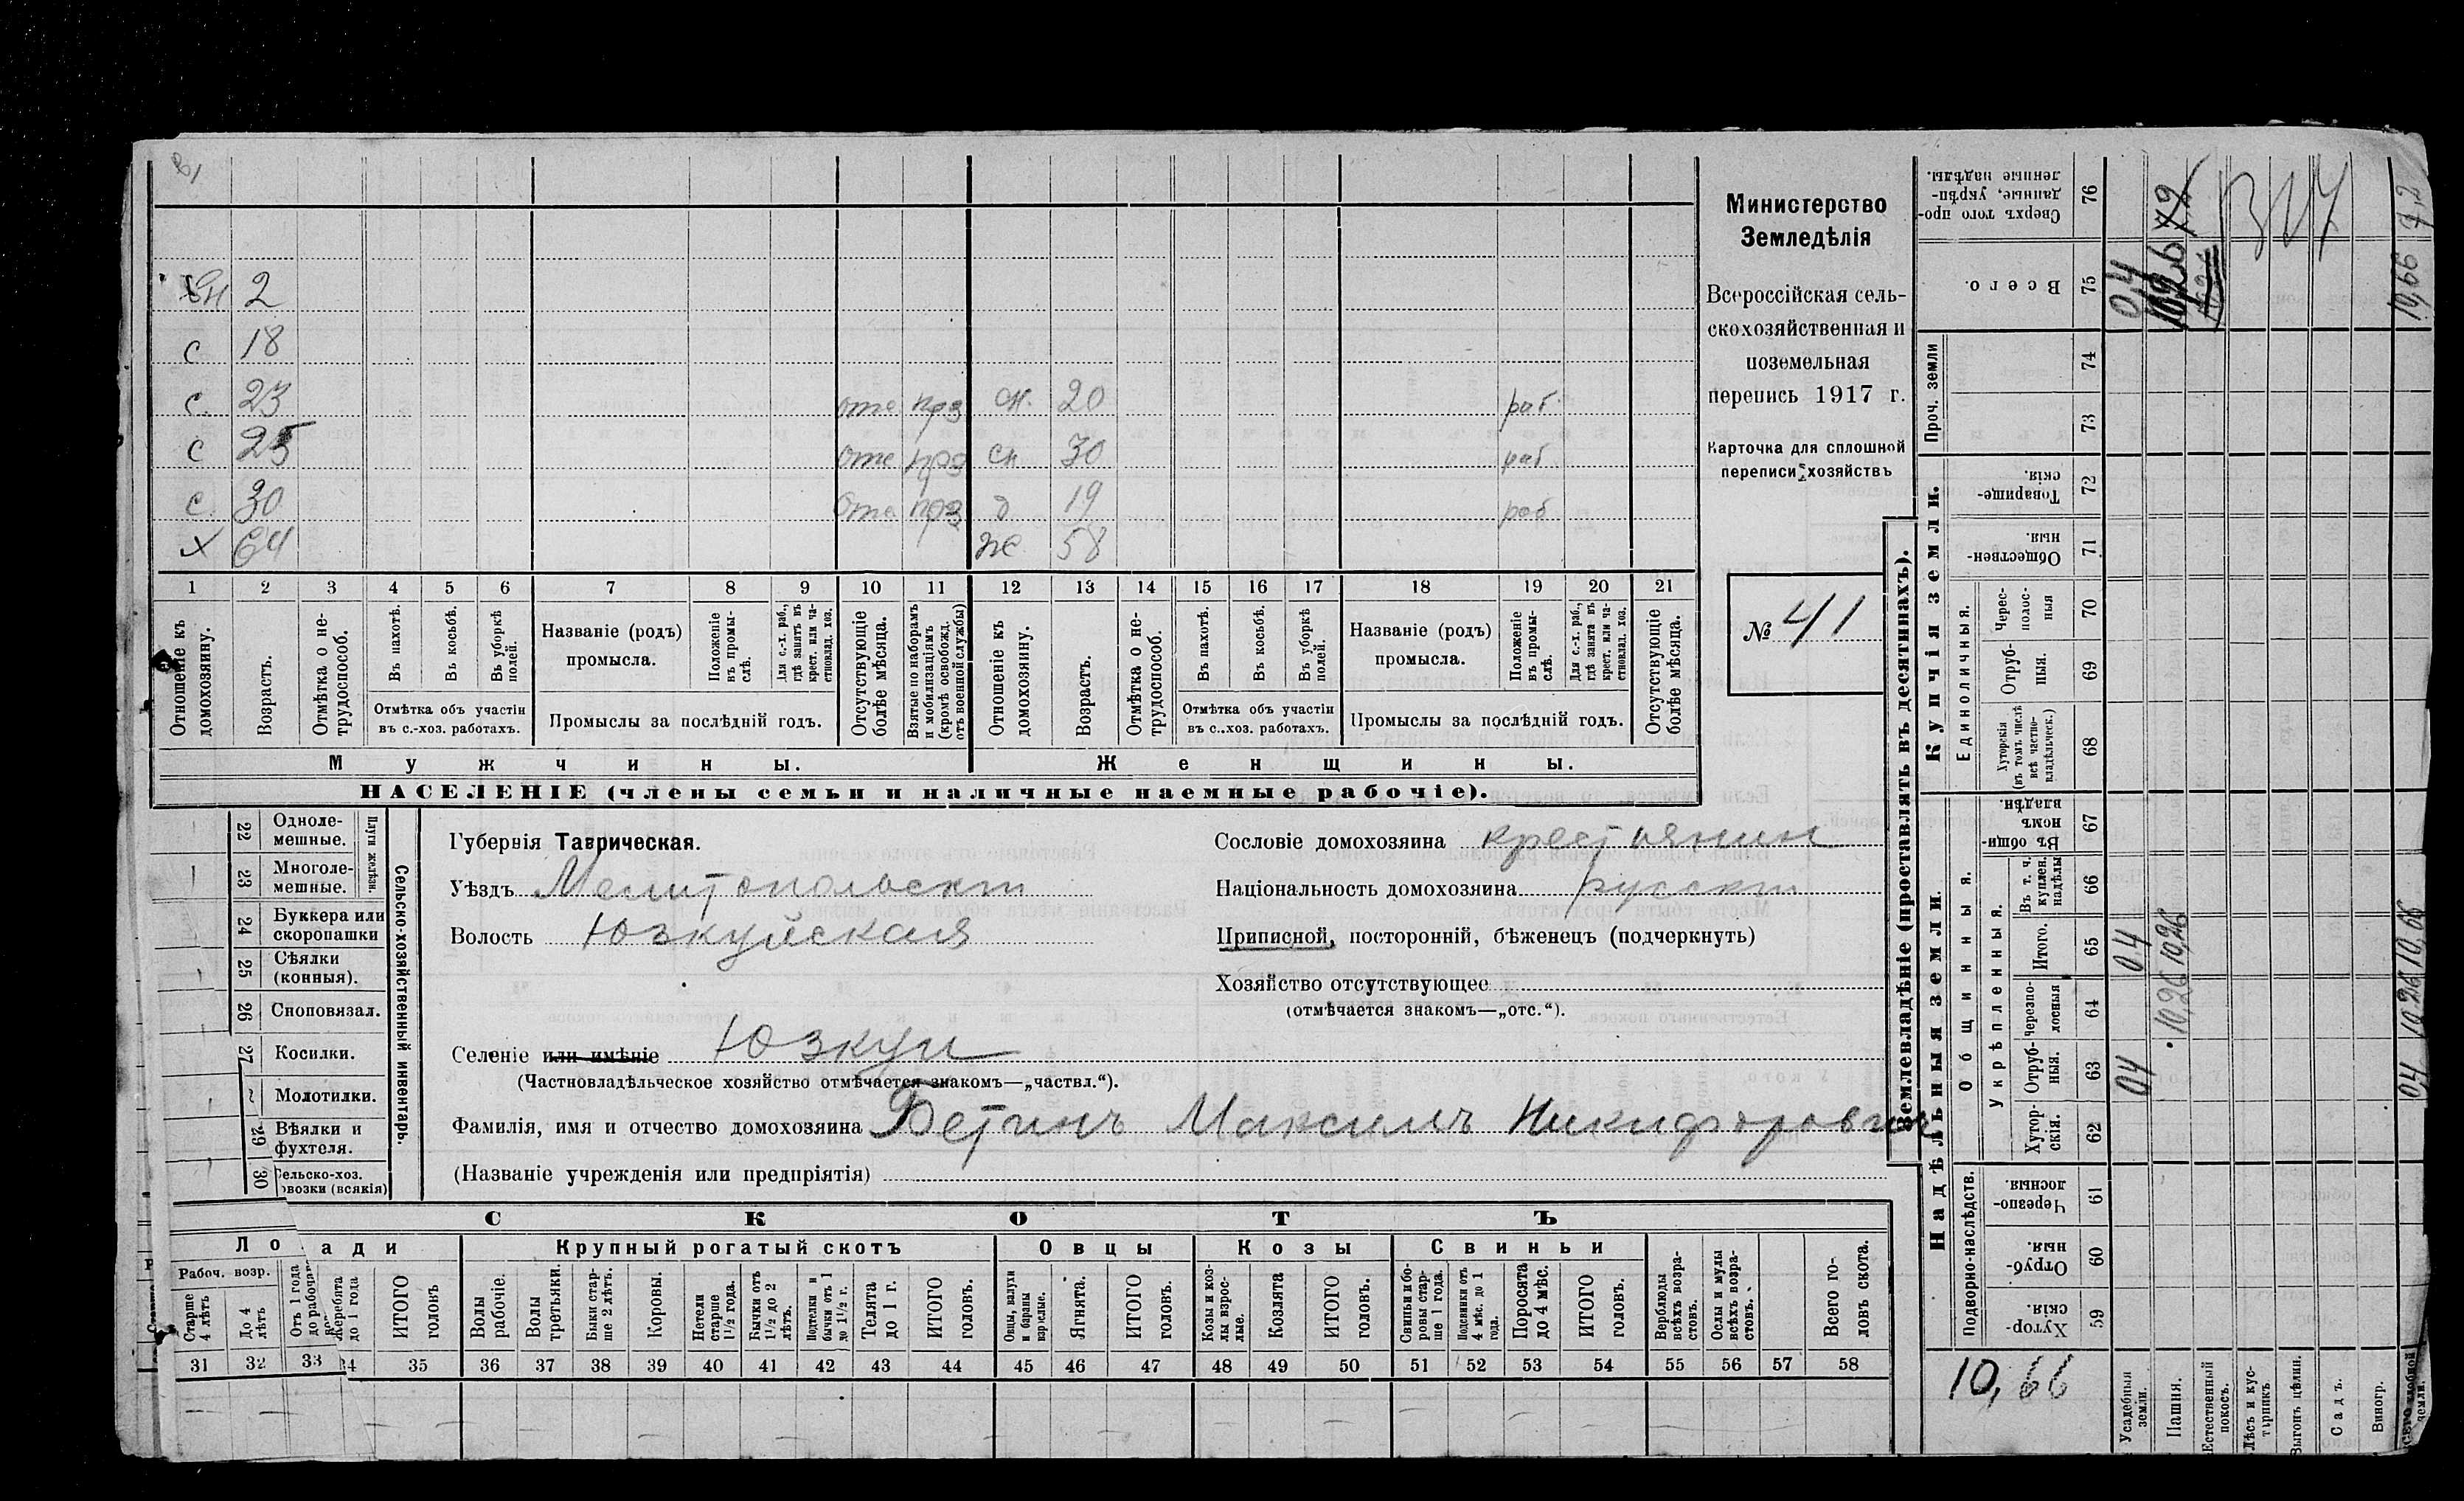 2
с 18
с. 23 отс прз сн. 20 раб.
с 25 отс прз сн 30 раб
с. 30 отс прз д 19 раб
х 64 же 58
1 2 3 4 5 6 7 8 9 10 11 12 13 14 15 16 17 18 19 20 21
Отношеніе къ домохозяину.
Возрастъ.
Отмѣтка о не-
трудоспособ.
Въ пахотѣ.
Въ косьбѣ.
Въ уборкѣ
полей.
Отмѣтка объ участіи
въ с.-хоз. работахъ.
Названіе (родъ)
промысла.
Положеніе
въ промы-
слѣ.
Для с.-х. раб.,
гдѣ занятъ въ
крест. или ча-
стновлад. хоз.
Промыслы за послѣдній годъ.
Отсутствующіе
болѣе мѣсяца.
Взятые по наборамъ
и мобилизаціямъ
(кромѣ освобожд.
отъ военной службы)
Отношеніе къ
домохозяину.
Возрастъ.
Отмѣтка о не-
трудоспособ.
Въ пахотѣ.
Въ косьбѣ.
Въ уборкѣ
полей.
Отмѣтка объ участіи
въ с.-хоз. работахъ.
Названіе (родъ)
промысла.
Положеніе
въ промы-
слѣ.
Для с.-х. раб.,
гдѣ занята въ
крест. или ча-
стновлад. хоз.
Промыслы за послѣдній годъ.
Отсутствующіе
болѣе мѣсяца.
Мужчины.
Женщины.
НАСЕЛЕНІЕ (члены семьи и наличные наемные рабочіе).
Министерство
Земледѣлія
Всероссійская сель-
скохозяйственная и
поземельная
перепись 1917 г.
Карточка для сплошной
переписи хозяйствъ
№ 41
22 Одноле-
мешные.
23 Многоле-
мешные.
Плуги желѣзн.
24 Буккера или
скоропашки
25 Сѣялки
(конныя).
26 Сноповязал.
27 Косилки.
Молотилки.
29 Вѣялки и
фухтеля.
30 Сельско-хоз.
повозки (всякія)
Сельско-хозяйственный инвентарь.
Губернія Таврическая.
Уѣздъ Мелитопольскій
Волость Юзкуйская
Селеніе или имѣніе Юзкуи
(Частновладѣльческое хозяйство отмѣчается знакомъ—„частвл.“).
Фамилія, имя и отчество домохозяина Бетинъ Максимъ Никифорович
(Названіе учрежденія или предпріятія)
Сословіе домохозяина крестьянин
Національность домохозяина русскій
Приписной, посторонній, бѣженецъ (подчеркнуть)
Хозяйство отсутствующее
(отмѣчается знакомъ—„отс.“).
СКОТЪ
Лошади
Рабоч. возр.
Старше
4 лѣтъ
До 4
лѣтъ
Отъ 1 года
до рабочаго
Жеребята
до 1 года
ИТОГО
головъ
Крупный рогатый скотъ
Волы
рабочіе.
Волы
третьяки.
Быки стар-
ше 2 лѣтъ.
Коровы.
Нетели
старше
1½ года.
Бычки отъ
1½ до 2
лѣтъ.
Подтелки и
бычки отъ 1
до 1½ г.
Телята
до 1 г.
ИТОГО
головъ.
Овцы
Овцы, валухи
и бараны
взрослые.
Ягнята.
ИТОГО
головъ.
Козы
Козы и коз-
лы взрос-
лые.
Козлята
ИТОГО
головъ.
Свиньи
Свиньи и бо-
ровы стар-
ше 1 года.
Подсвинки отъ
4 мѣс. до 1
года.
Поросята
до 4 мѣс.
ИТОГО
головъ.
Верблюды
всѣхъ возра-
стовъ.
Ослы и мулы
всѣхъ возра-
стовъ.
Всего го-
ловъ скота.
31 32 33 34 35 36 37 38 39 40 41 42 43 44 45 46 47 48 49 50 51 52 53 54 55 56 57 58
Землевладѣніе (проставлять въ десятинахъ).
Надѣльныя земли.
Купчія земли.
Проч. земли
Подворно-наслѣдств.
Общинныя.
Укрѣпленныя.
Единоличныя.
Сверхъ того про-
данные, укрѣп-
ленные надѣлы.
76
Всего.
75
74
73
Товарище-
скія.
72
Обществен-
ныя.
71
Черес-
полос-
ныя
70
Отруб-
ныя.
69
Хуторскія
(въ томъ числѣ
всѣ частно-
владѣльческ.)
68
Въ общин-
номъ
владѣн.
67
Въ т. ч.
куплен.
надѣлы
66
Итого.
65
Черезпо-
лосныя
64
Отруб-
ныя.
63
Хутор-
скія.
62
Черезпо-
лосныя.
61
Отруб-
ныя.
60
Хутор-
скія.
59
0,4
04
04
10,26
10,26
04
10,26
10,66
10,66
7,2
10,66
Усадебныя
земли.
Пашня.
Естественный
покосъ.
Лѣсъ и кус-
тарникъ.
Выгонъ цѣлин.
Садъ.
Виногр.
Всего удобной
земли.